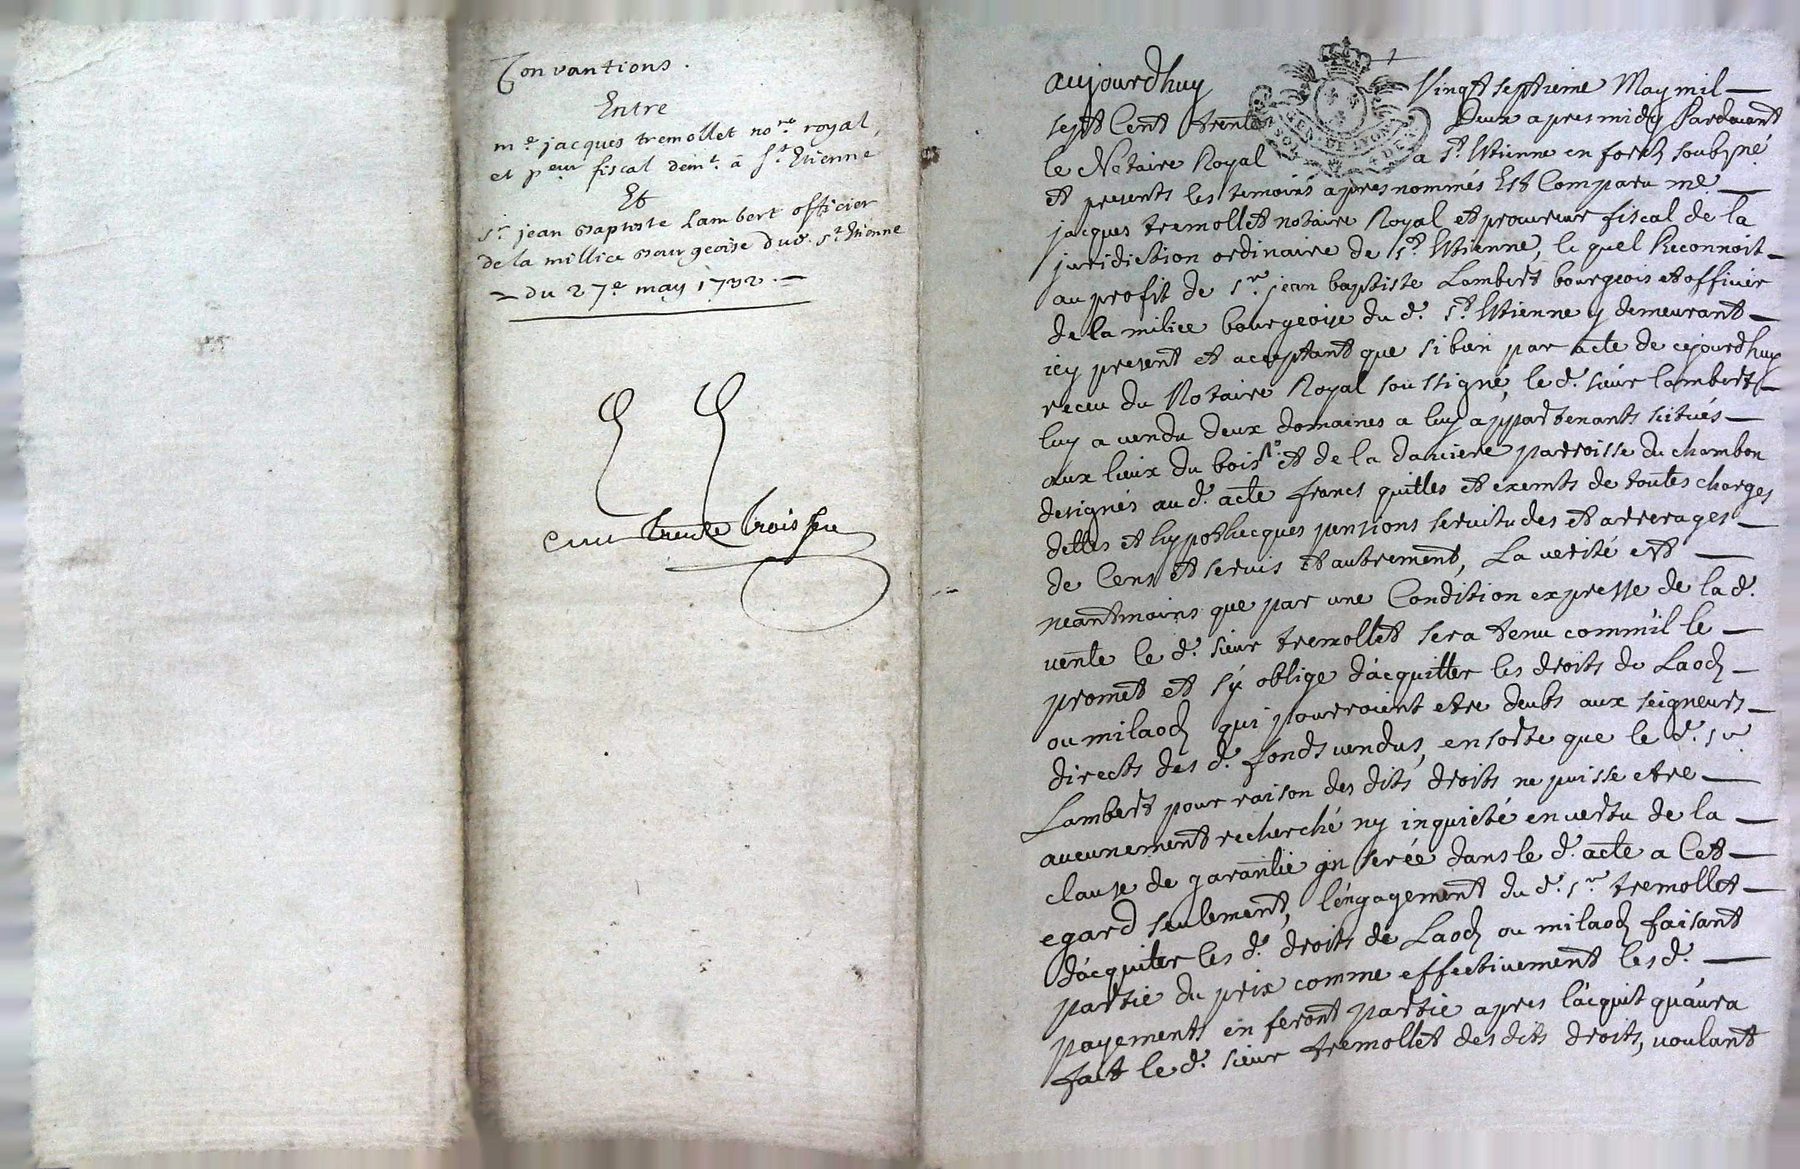 Convantions.
Entre
me jacques tremollet nore royal,
et peur fiscal demt. à St Etienne
Et
sr. jean Baptiste Lambert officier
de la millice Bourgeoise dud. St Etienne
du 27e may 1732.
trente trois
aujourdhuy Vingt septieme May mil
sept Cent trente Deux apres midy Pardevant
le Notaire Royal a St. Estienne en forests soubsné
et presents les temoins apres nommés Est Comparu me
jacques tremollet notaire Royal et procureur fiscal de la
juridiction ordinaire de St. Estienne, le quel Reconnoit
au profit de sr. jean baptiste Lambert bourgeois et officier
de la milice bourgeoise du d. St. Estienne y demeurant
icy present et acceptant que si bien par acte de cejourdhuy
receu du Notaire Royal soussigné, le d. sieur lambert
luy a vendu deux domaines a luy appartenants scitués
aux lieux du bois et de la darciere parroisse du chambon
designés au d. acte francs quittes et exempts de toutes charges
dettes et hypothecques pensions servitudes et arrerages
de Cens et servis et autrement, La verité est
neantmoins que par une Condition expresse de la d.
vente le d. sieur tremollet sera tenu comm'il le
promet et s'y oblige d'acquitter les droits de Laods
ou milaods qui pourroient etre deubs aux seigneurs
directs des d. fonds vendus, en sorte que le d. sr.
Lambert pour raison des dits droits ne puisse etre
aucunement recherché ny inquieté en vertu de la
clause de garantie in serée dans le d. acte a Cet
egard seulement, l'engagement du d. sr. tremollet
d'acquiter les d. droits de Laods ou milaods faisant
partie du prix comme effectivement les d.
payements en feront partie apres l'acquit qu'aura
fait le d. sieur tremollet des dits droits, voulant